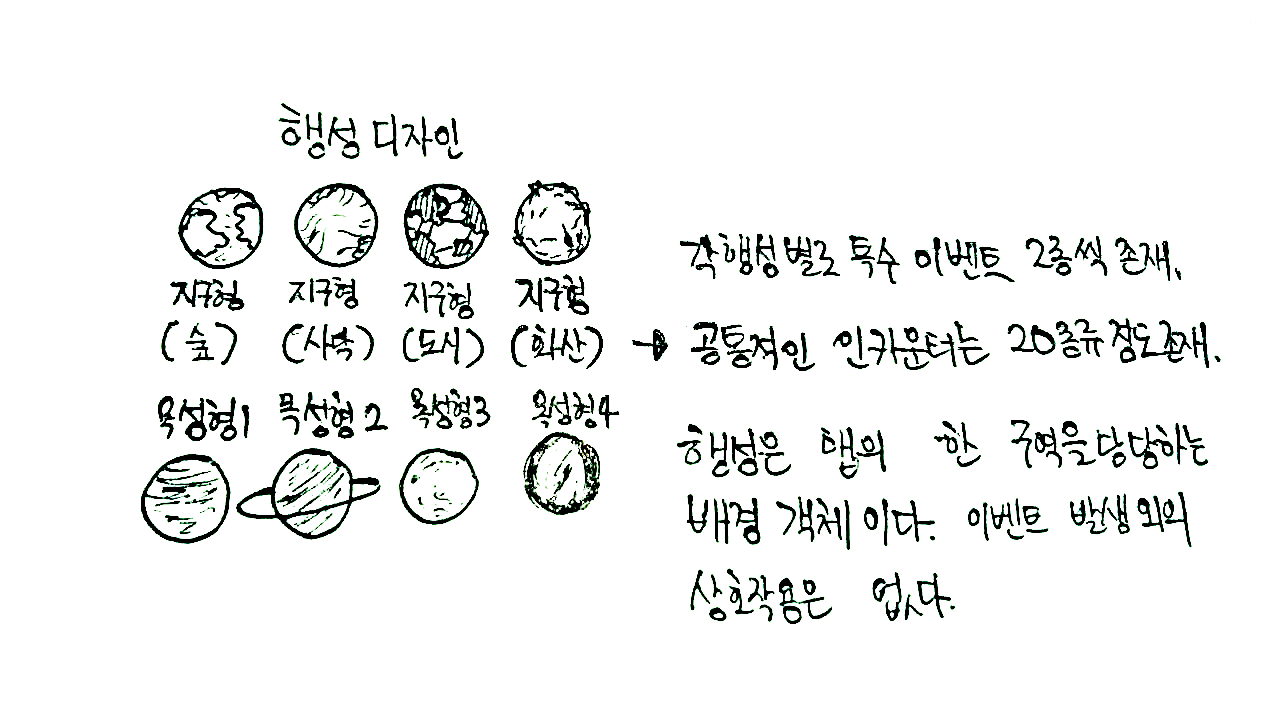 행성 디자인
지구형 지구형 지구형 지구형
(숲) (사막) (도시) (화산)
목성형1 목성형2 목성형3 목성형4
각 행성별로 특수 이벤트 2종씩 존재.
→ 공통적인 인카운터는 20종류 정도 존재.
행성은 맵의 한 구역을 담당하는
배경 객체이다. 이벤트 발생 외의
상호작용은 없다.